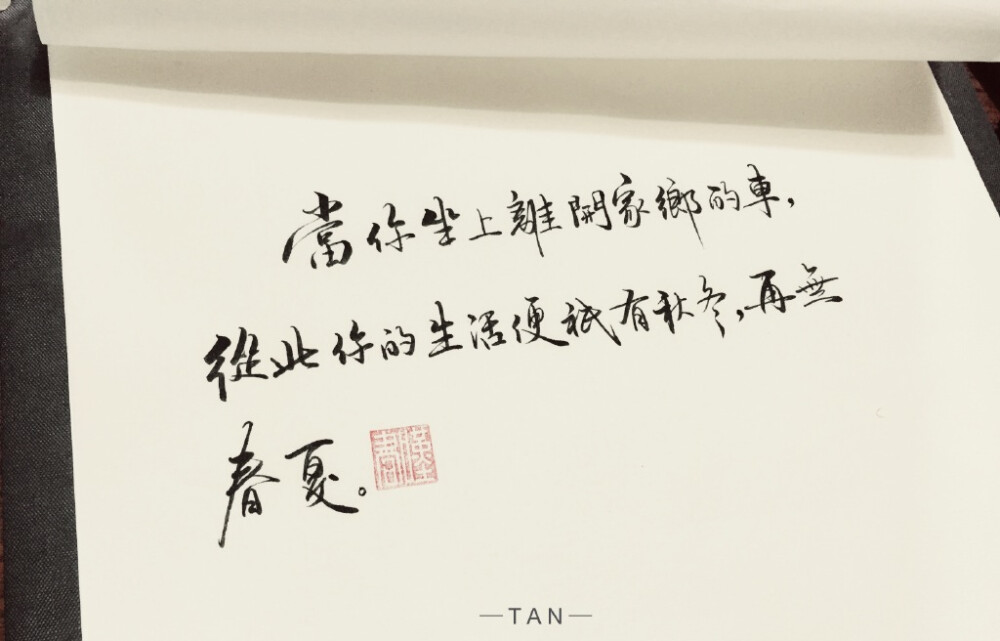 當你坐上離開家鄉的車，
從此你的生活便祇有秋冬，再無
春夏。
—TAN—